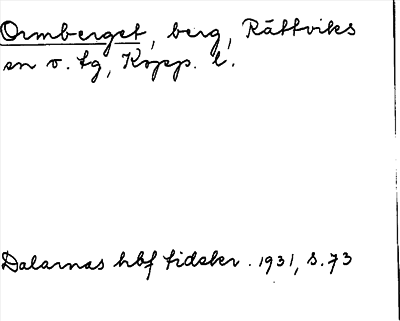 Ormberget, berg, Rättviks
sn o. tg, Kopp. l.
Dalarnas hbf tidskr. 1931, s. 73